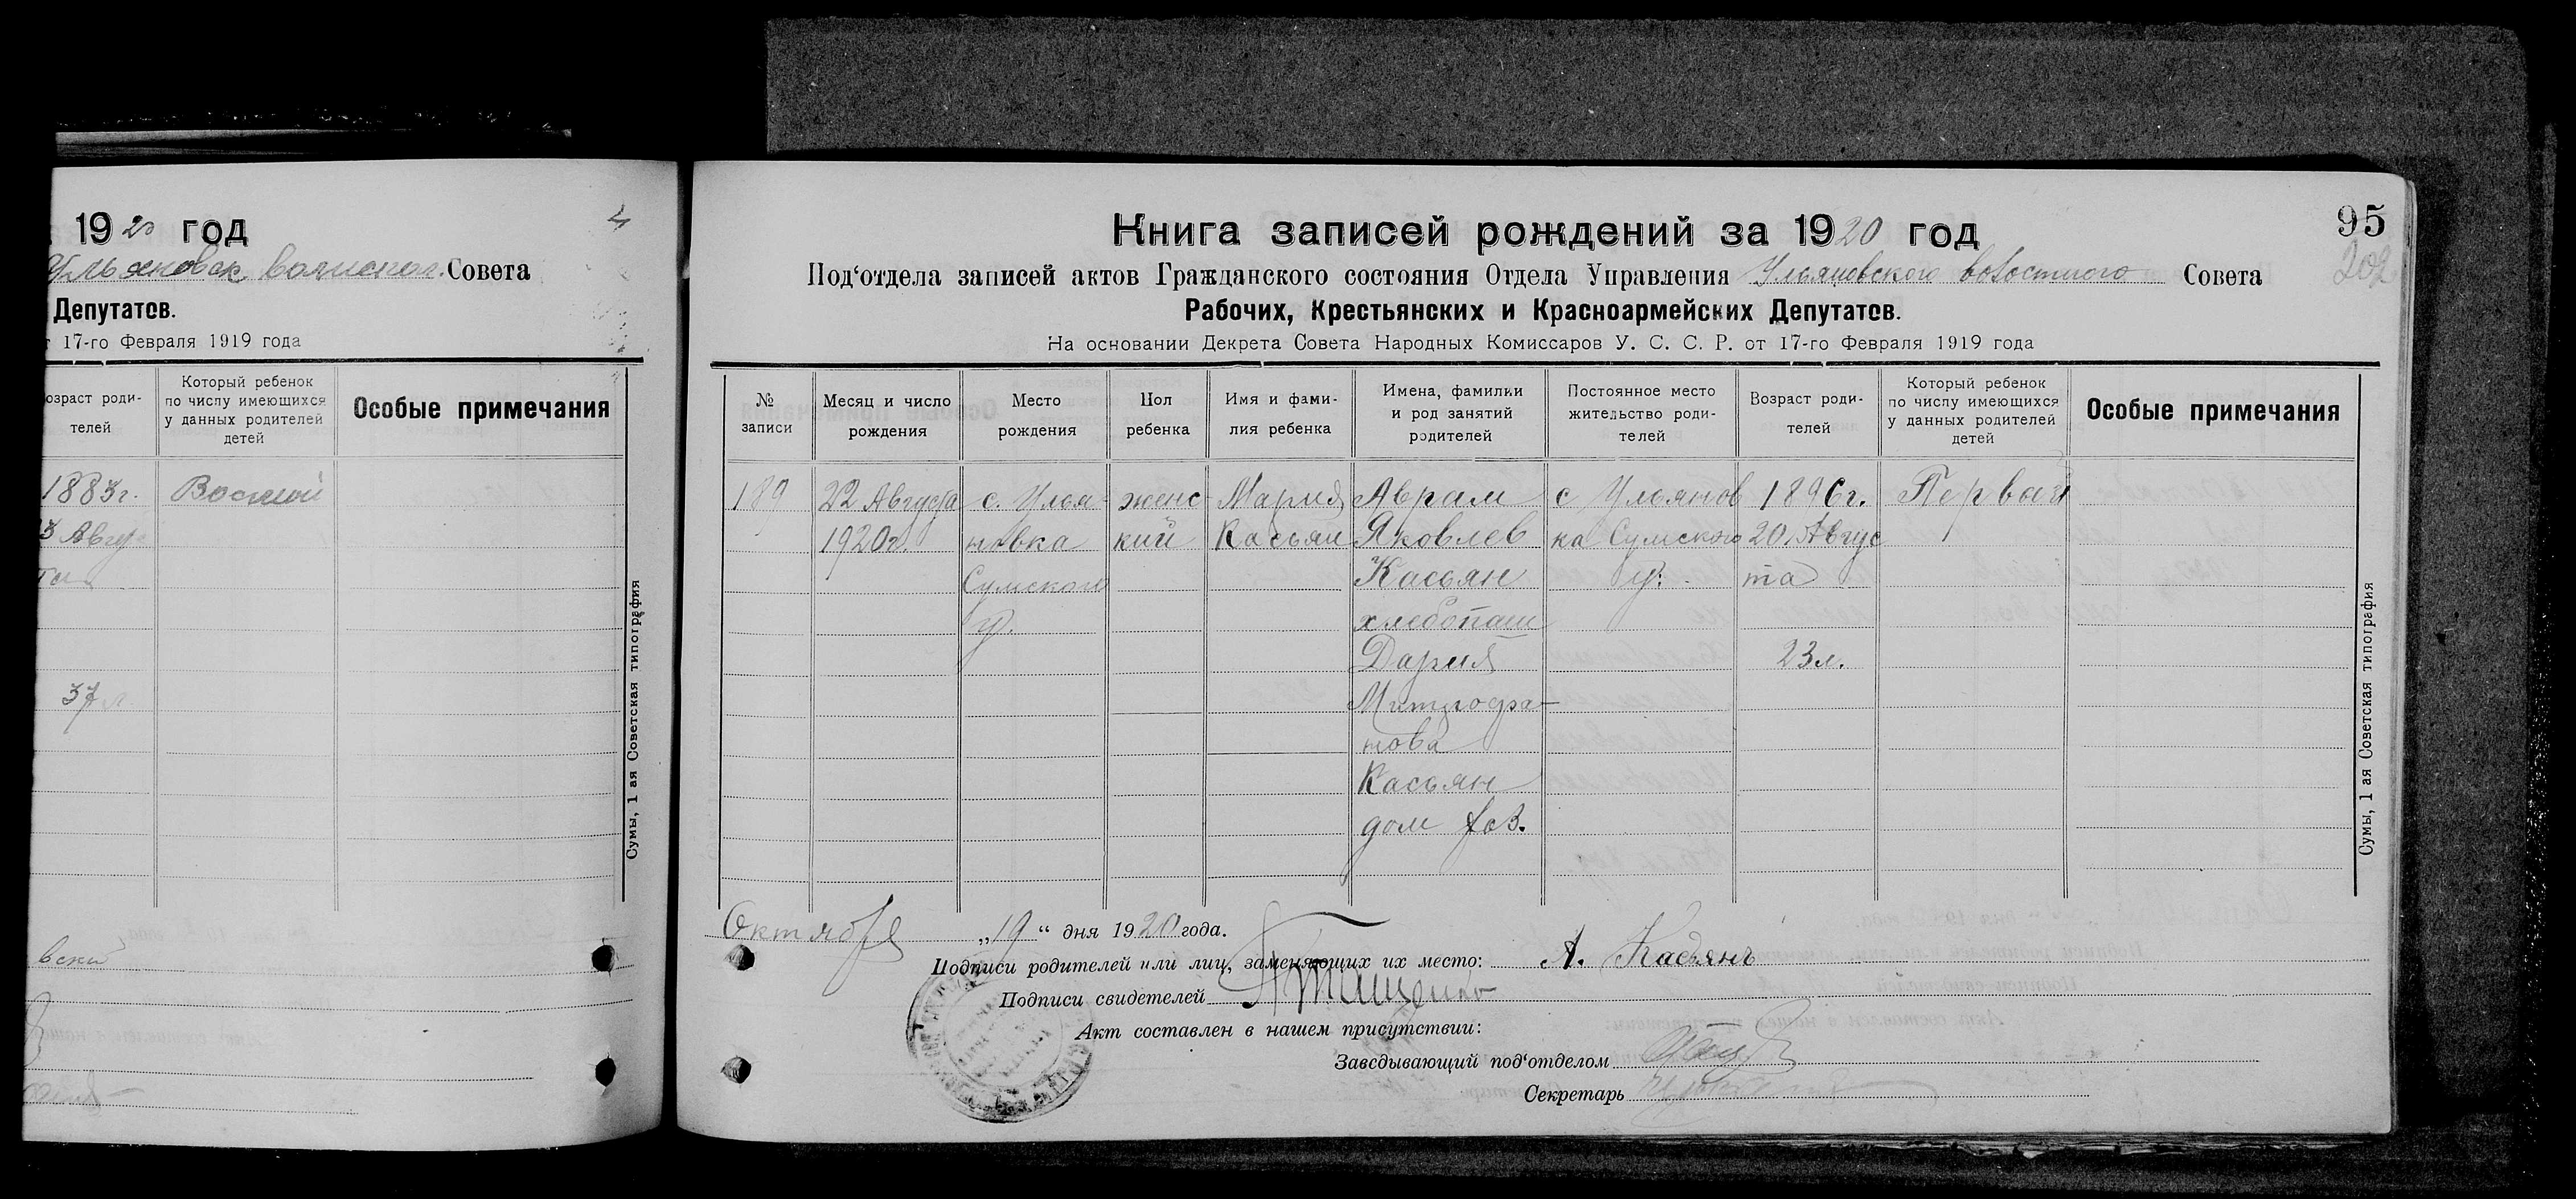 1920 год
Ульяновск волиспол. Совета
Депутатов.
т 17-го Февраля 1919 года
озраст роди-
телей
Который ребенок
по числу имеющихся
у данных родителей
детей
Особые примечания
1883г.
Восмой
3 Авгус
та
37 л.
Сумы, 1 ая Советская типография
вский
95
202
Книга записей рождений за 1920 год
Под‘отдела записей актов Гражданского состояния Отдела Управления Ульяновского волостного Совета
Рабочих, Крестьянских и Красноармейских Депутатов.
На основании Декрета Совета Народных Комиссаров У. С. С. Р. от 17-го Февраля 1919 года
№
записи
Месяц и число
рождения
Место
рождения
Пол
ребенка
Имя и фами-
лия ребенка
Имена, фамилии
и род занятий
родителей
Постоянное место
жительство роди-
телей
Возраст роди-
телей
Который ребенок
по числу имеющихся
у данных родителей
детей
Особые примечания
189
22 Августа
1920г.
с. Улья-
новка
Сумского
у.
женс
кий
Мария
Касьян
Аврам
Яковлев
Касьян
хлебопаш
Дария
Митрофа-
нова
Касьян
дом хоз.
с Ульянов
ка Сумского
у.
1896г.
20 Авгус
та
23л.
Первый
Сумы, 1 ая Советская типография
Октября „19“ дня 1920 года.
Подписи родителей или лиц, заменяющих их место: А. Касьянъ
Подписи свидетелей
Акт составлен в нашем присутствии:
Заведывающий под‘отделом
Секретарь